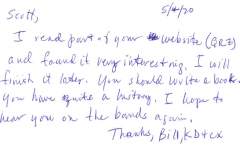 Scott, 5/4/20
I read part of your website (QRZ)
and found it very interesting. I will
finish it later. You should write a book.
You have quite a history. I hope to
hear you on the bands again.
Thanks, Bill,